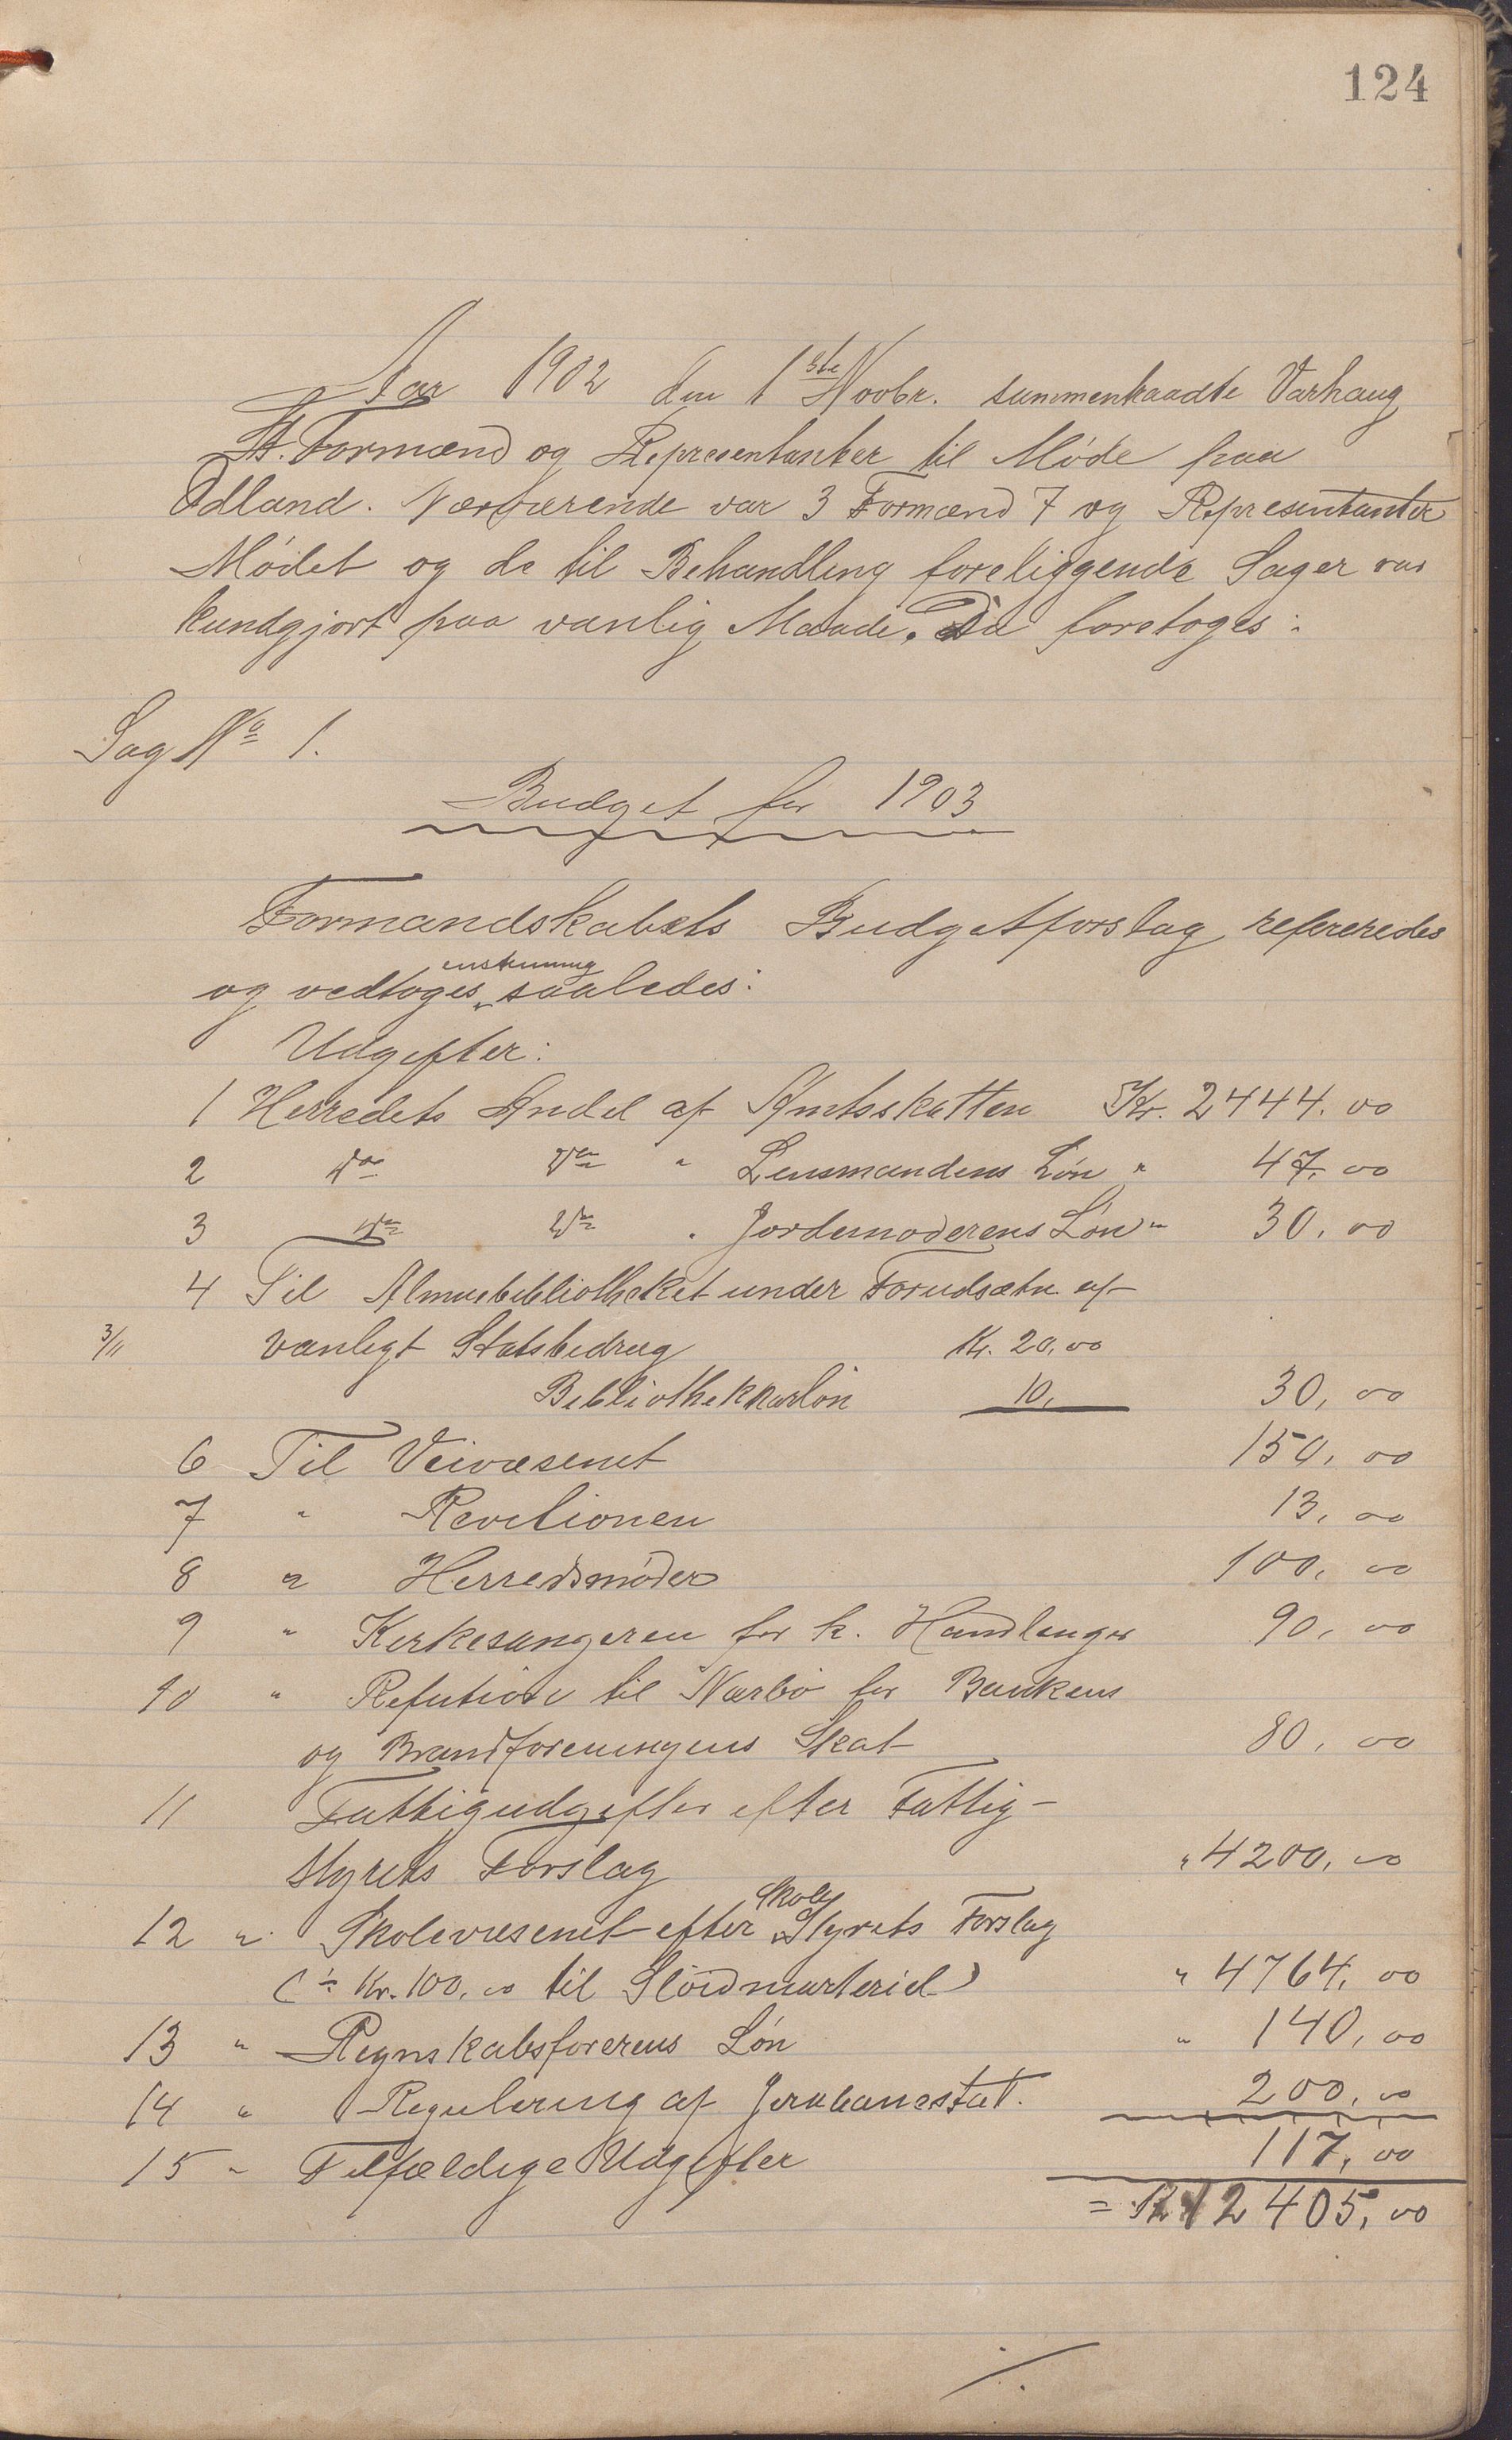 124
Aar 1902 den 1ste Novbr. sammenkaadte Varhaug
H. Formænd og Representanter til Møde paa
Ødland. Nærværende var 3 Formænd 7 og Representanter
Mødet og de til Behandling foreliggende Sager var
kundgjort paa vanlig Maade. Da foretoges:
Sag No 1.
Budget for 1903
Formandskabets Budgetforslag refereredes
og vedtoges enstemmig saaledes:
Udgifter:
1 Herredets Andel af Amtsskatten Kr. 2444.00
2 Do Do " Lensmandens Løn " 47.00
3 Do Do " Jordemoderens Løn " 30.00
4 Til Almuebibliotheket under Forudsætn. af
3/11 vanligt Statsbidrag Kr. 20,00
Bibliothekkarløn 10, 30,00
6 Til Veivæsenet 150,00
7 " Revisionen 13,00
8 " Herredsmøder 100,00
9 " Kirkesangeren for k. Handlinger 90,00
10 " Refution til Nærbø for Bankens
og Brandforeningens Skat 80,00
11 Fattigudgifter efter Fattig-
styrets Forslag " 4200,00
12 " Skolevæsenet efter Skole Styrets Forslag
(÷ Kr. 100,00 til Sløidmarteriel) " 4764,00
13 " Regnskabsførerens Løn " 140,00
14 " Regulering af Jernbanestat. 200,00
15 " Tilfældige Udgifter 117,00
= Kr 12405,00
./.